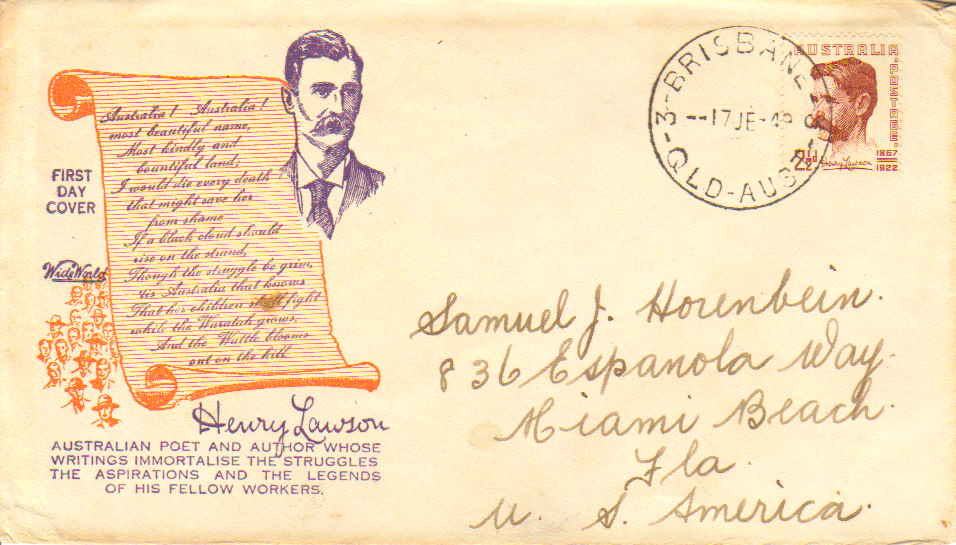 FIRST
DAY
COVER
Wide World
Australia! Australia!
most beautiful name,
Most kindly and
bountiful land;
I would die every death
that might save her
from shame
If a black cloud should
rise on the strand,
Though the struggle be grim,
'tis Australia that knows
That her children shall fight
while the Waratah grows,
And the Wattle blooms
out on the hill
Henry Lawson
AUSTRALIAN POET AND AUTHOR WHOSE
WRITINGS IMMORTALISE THE STRUGGLES
THE ASPIRATIONS AND THE LEGENDS
OF HIS FELLOW WORKERS.
3-BRISBANE
17 JE-49
QLD-AUS
AUSTRALIA
POSTAGE
2½d
Henry Lawson
1867
1922
Samuel J. Horenbein.
836 Espanola Way.
Miami Beach.
Fla.
U. S. America.